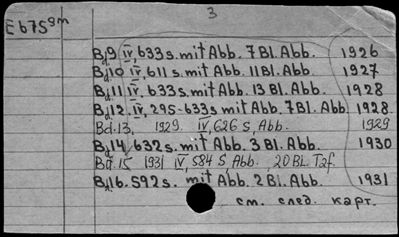 E67S9m
3
Bd9 IV, 633 s. mit Abb. 7 Bl. Abb. 1926
Bd10 IV, 611 s. mit Abb. 11 Bl. Abb. 1927
Bd11 IV, 633 s. mit Abb. 13 Bl. Abb. 1928
Bd12, IV, 295-633 s mit Abb. 7 Bl. Abb. 1928.
Bd. 13, 1929. IV, 626 S, Abb. 1929
Bd14, 632 s. mit Abb. 3 Bl. Abb. 1930
Bd. 15 1931 IV, 584 S, Abb., 20 Bl. Taf.
Bd16. 592 s. mit Abb. 2 Bl. Abb. 1931
см. след. карт.